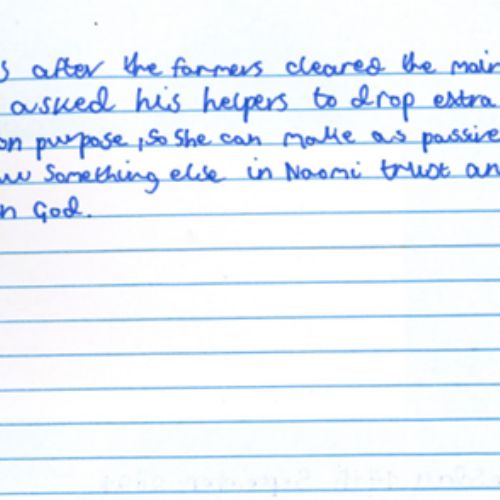 s after the farmers cleared the main
asked his helpers to drop extra
on purpose, so she can make as passive
something else in Naomi trust an
n God.